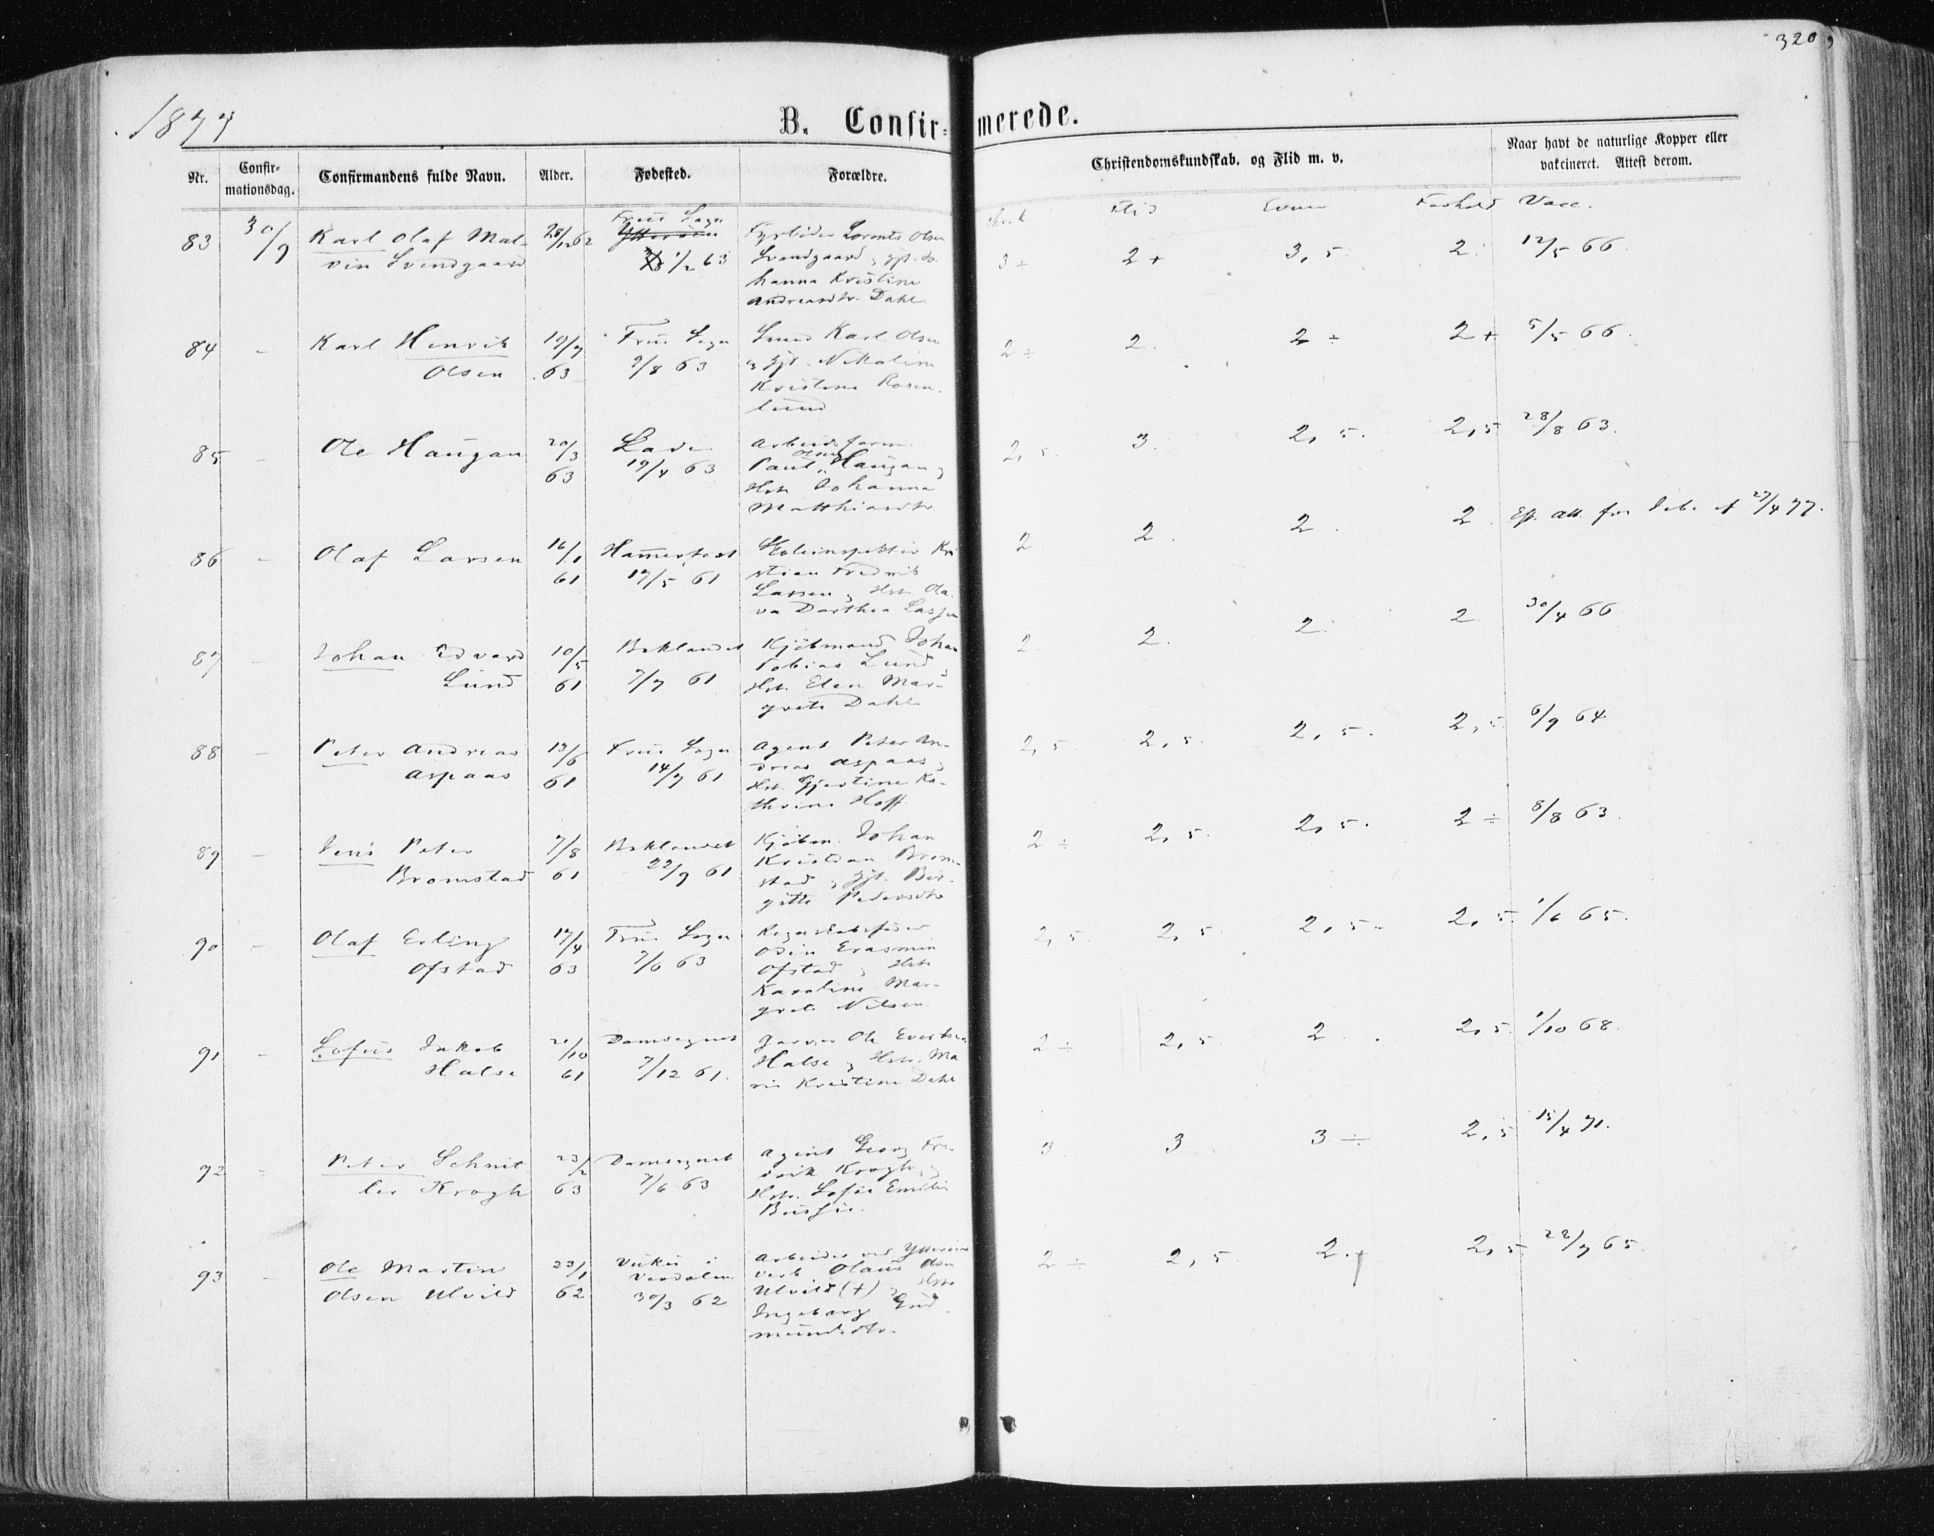 320
1877
B. Confir=merede.
Nr. Confir-mationsdag. Confirmandens fulde Navn. Alder. Fødested. Forældre. Christendomskundskab. og Flid m. v. Naar havt de naturlige Kopper eller vakcineret. Attest derom.
Flid Evner Forhold Vacc.
83 30/9 Karl Olaf Mal- 28/12 62 Frue Sogn
Ytterøen
vin Svendgaard 1/2 63
Lorents Olsen
Svendgaard, Gjt. Jo-
hanna Kristine
Andreasdtr. Dahl
3 ÷ 2 + 3,5. 2. 12/5 66.
84 - Karl Henrik 19/7 Frue Sogn Smed Karl Olsen
Olsen 63 9/8 63 Gjt. Nikoline
Kristine Rosen-
lund
2 ÷ 2. 2 ÷ 2 + 5/5 66.
85 - Ole Haugan 20/3 Lade
63 19/4 63
Arbeidsform.
Olsen
Paul Haugan,
Hst. Johanna
Matthiasdtr.
2,5. 3. 2,5. 2,5 28/8 63.
86 - Olaf Larsen 16/1 Hamerfest
61 17/5 61
Kri-
stian Fredrik
Lassen, Hst. Ola-
va Dorthea Lassen
2 2. 2. 2. Ef. Att. fra af 27/4 77.
87 - Johan Edvard 10/5 Baklandet Kjöbmand Johan
Lund 61 7/7 61 Tobias Lund,
Hst. Elen Mar-
grete Dahl
2 2. 2. 2 30/4 66
88 - Peter Andreas 13/6 Frue Sogn Agent Peter An-
Aspaas 61 14/7 61 dreas Aspaas,
Hst. Gjertine Ka-
thrine Hoff.
2,5. 2,5. 2,5. 2,5 6/9 64
89 - Jens Peter 7/8 Baklandet Kjöbm. Johan
Bromstad 61 22/9 61 Kristian Brom-
stad, Gjt. Ber-
gitte Pedersdtr
2 ÷ 2,5. 2,5. 2 ÷ 8/8 63.
90 - Olaf Erling 17/4 Frue Sogn Regnskabsfører
Ofstad 63 7/6 63 Odin Erasmin
Ofstad, Hst.
Karoline Mar-
grete Nilsen.
2,5. 2,5. 2,5. 2,5. 1/6 65.
91 - Sofus Jakob 21/10 Domsognet Garver Ole Evertsen
Halse 61 7/12 61. Halse, Hst. Ma-
rie Kristine Dahl
2 ÷ 2,5. 2. 2,5 1/10 68.
92 - Peter Schnit- 23/2 Domsognet Agent Georg Fre-
ler Krogh 63 7/6 63 drik Krogh,
Hst. Sofie Emilie
3 3 3 ÷ 2,5 15/4 71.
93 - Ole Martin 23/1 Vuku i
Olsen Ulvild 62 Verdalen
30/3 62
Arbeider ved Ytterøens
verk Olaus Olsen
Ulvild (+), Hst.
Ingeborg Gud-
mundsdtr.
2 ÷ 2,5. 2. 2,5 22/7 65.